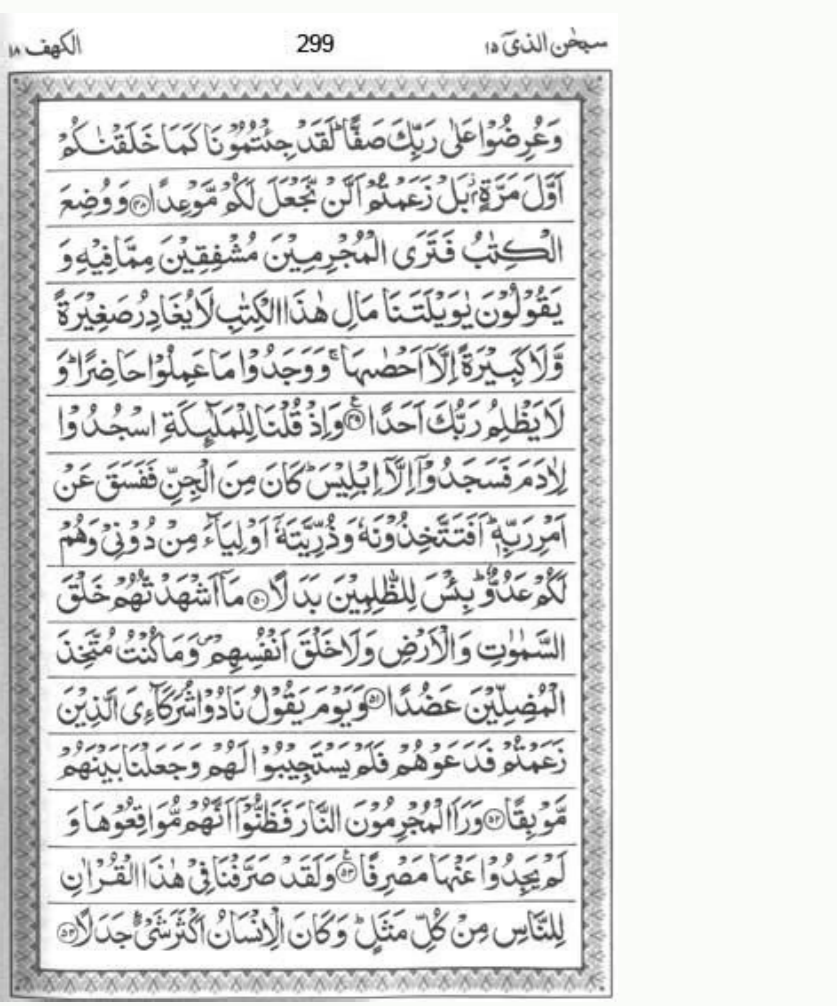 سبحٰن الذیۤ ۱۵ 299 الكهف ۱۸
وَعُرِضُوْا عَلٰى رَبِّكَ صَفًّا ؕ لَقَدْ جِئْتُمُوْنَا كَمَا خَلَقْنٰكُمْ
اَوَّلَ مَرَّةٍۭ ؗ بَلْ زَعَمْتُمْ اَلَّنْ نَّجْعَلَ لَكُمْ مَّوْعِدًا ﴿۴۸﴾ وَوُضِعَ
الْكِتٰبُ فَتَرَى الْمُجْرِمِيْنَ مُشْفِقِيْنَ مِمَّا فِيْهِ وَ
يَقُوْلُوْنَ يٰوَيْلَتَنَا مَالِ هٰذَا الْكِتٰبِ لَا يُغَادِرُ صَغِيْرَةً
وَّلَا كَبِيْرَةً اِلَّاۤ اَحْصٰىهَا ۚ وَوَجَدُوْا مَا عَمِلُوْا حَاضِرًا ؕ وَ
لَا يَظْلِمُ رَبُّكَ اَحَدًا ﴿۴۹﴾ ع وَاِذْ قُلْنَا لِلْمَلٰٓئِكَةِ اسْجُدُوْا
لِاٰدَمَ فَسَجَدُوْۤا اِلَّاۤ اِبْلِيْسَ ؕ كَانَ مِنَ الْجِنِّ فَفَسَقَ عَنْ
اَمْرِ رَبِّهٖ ؕ اَفَتَتَّخِذُوْنَهٗ وَذُرِّيَّتَهٗۤ اَوْلِيَآءَ مِنْ دُوْنِيْ وَهُمْ
لَكُمْ عَدُوٌّ ؕ بِئْسَ لِلظّٰلِمِيْنَ بَدَلًا ﴿۵۰﴾ مَاۤ اَشْهَدْتُّهُمْ خَلْقَ
السَّمٰوٰتِ وَالْاَرْضِ وَلَا خَلْقَ اَنْفُسِهِمْ ۪ وَمَا كُنْتُ مُتَّخِذَ
الْمُضِلِّيْنَ عَضُدًا ﴿۵۱﴾ وَيَوْمَ يَقُوْلُ نَادُوْا شُرَكَآءِيَ الَّذِيْنَ
زَعَمْتُمْ فَدَعَوْهُمْ فَلَمْ يَسْتَجِيْبُوْا لَهُمْ وَجَعَلْنَا بَيْنَهُمْ
مَّوْبِقًا ﴿۵۲﴾ وَرَاَ الْمُجْرِمُوْنَ النَّارَ فَظَنُّوْۤا اَنَّهُمْ مُّوَاقِعُوْهَا وَ
لَمْ يَجِدُوْا عَنْهَا مَصْرِفًا ﴿۵۳﴾ ع وَلَقَدْ صَرَّفْنَا فِيْ هٰذَا الْقُرْاٰنِ
لِلنَّاسِ مِنْ كُلِّ مَثَلٍ ؕ وَكَانَ الْاِنْسَانُ اَكْثَرَ شَيْءٍ جَدَلًا ﴿۵۴﴾